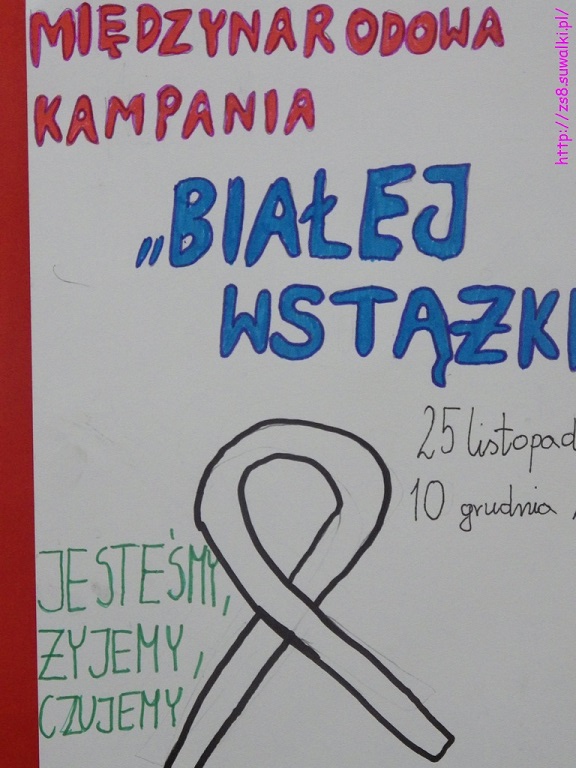 MIĘDZYNARODOWA
KAMPANIA
„BIAŁEJ
WSTĄŻKI
25 listopad
10 grudnia
JESTEŚMY,
ŻYJEMY,
CZUJEMY
http://zs8.suwalki.pl/